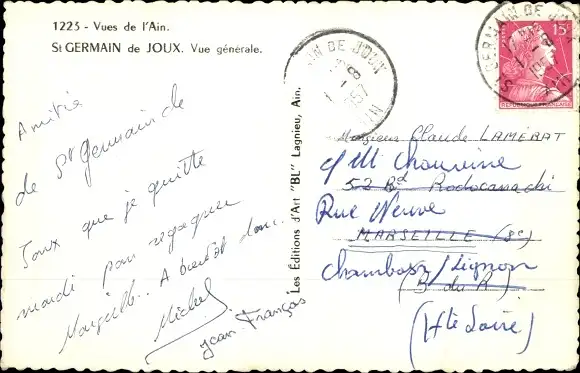 1223 - Vues de l'Ain.
St GERMAIN de JOUX. Vue générale.
Amitié
de St Germain de
Joux que je quitte
mardi pour regagner
Marseille.. A bientôt donc.
Michel
Jean François
Les Editions d'Art "BL" Lagnieu, Ain.
ST GERMAIN DE JOUX
1-8
1957
AIN
15F
REPUBLIQUE FRANÇAISE
Monsieur Claude LAMERAT
c/ M Chouvine
52 Bd Rodocanachi
Rue Neuve
MARSEILLE (8e)
Chambon/Lignon
(B du R)
(Hte Loire)